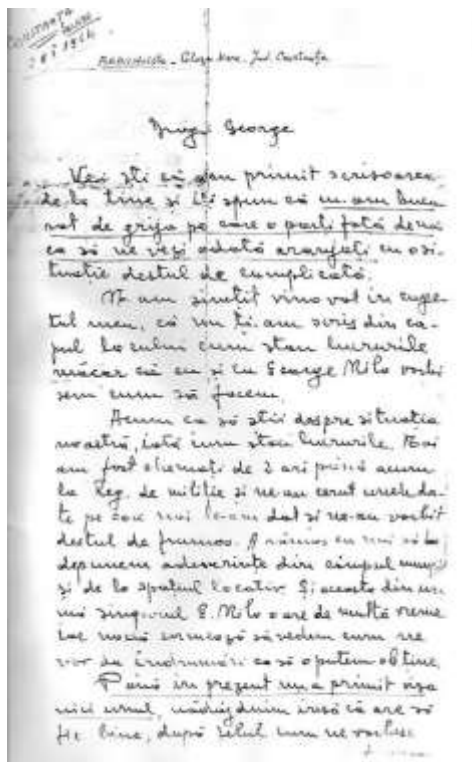 CONSTANȚA
1964
Jud. Constanța
George
Vei ști că am primit scrisoarea
de la tine și îți spun că m-am bucu
rat de grija pe care o porți față de noi
ca să ne vezi odată aranjați cu o si-
tuație destul de complicată.
M-am simțit vinovat în cuge-
tul meu, că nu ți-am scris din ca-
pul locului cum stau lucrurile
măcar că eu și cu George Milo vorbi
sem cum să facem.
Acum ca să știi despre situația
noastră, iată cum stau lucrurile. Noi
am fost chemați de 2 ori până acum
la Reg. de miliție și ne-au cerut unele da-
te pe care noi le-am dat și ne-au vorbit
destul de frumos. A rămas ca noi să
depunem adeverințe din câmpul muncii
și de la spațiul locativ. Și aceasta din ur-
mă singurul G. Milo o are de multă vreme
iar nouă urmează să vedem cum ne
vor da îndrumări ca să o putem obține.
Până în prezent nu a primit viza
nici unul, nădăjduim însă că are să
fie bine, după felul cum ne vorbesc